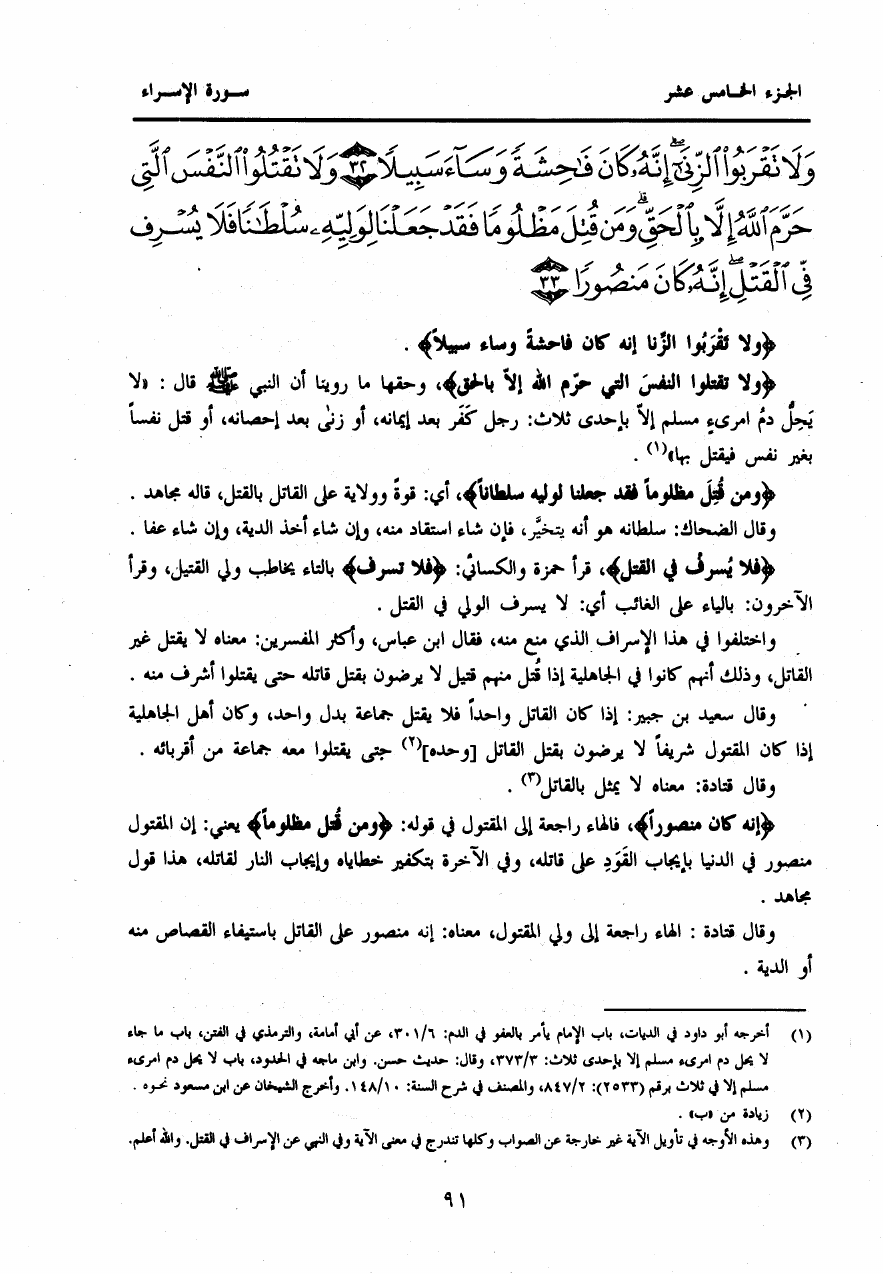 الجزء الخامس عشر
سورة الإسراء
وَلَا تَقْرَبُوا۟ ٱلزِّنَىٰٓ ۖ إِنَّهُۥ كَانَ فَـٰحِشَةً وَسَآءَ سَبِيلًا ٣٢ وَلَا تَقْتُلُوا۟ ٱلنَّفْسَ ٱلَّتِى
حَرَّمَ ٱللَّهُ إِلَّا بِٱلْحَقِّ ۗ وَمَن قُتِلَ مَظْلُومًا فَقَدْ جَعَلْنَا لِوَلِيِّهِۦ سُلْطَـٰنًا فَلَا يُسْرِف
فِّى ٱلْقَتْلِ ۖ إِنَّهُۥ كَانَ مَنصُورًا ٣٣
﴿ولا تَقْرَبُوا الزِّنا إنه كان فاحشةً وساء سبيلاً﴾ .
﴿ولا تقتلوا النفسَ التي حرّم الله إلاّ بالحق﴾، وحقها ما روينا أن النبي ﷺ قال : «لا
يَحِلُّ دمُ امرىءٍ مسلم إلاّ بإحدى ثلاث: رجل كَفَر بعد إيمانه، أو زنىٰ بعد إحصانه، أو قتل نفساً
بغير نفس فيقتل بها»(١) .
﴿ومن قُتِلَ مظلوماً فقد جعلنا لوليه سلطاناً﴾، أي: قوةً وولاية على القاتل بالقتل، قاله مجاهد .
وقال الضحاك: سلطانه هو أنه يتخيَّر، فإن شاء استقاد منه، وإن شاء أخذ الدية، وإن شاء عفا .
﴿فلا يُسرفْ في القتل﴾، قرأ حمزة والكسائي: ﴿فلا تسرف﴾ بالتاء يخاطب ولي القتيل، وقرأ
الآخرون: بالياء على الغائب أي: لا يسرف الولي في القتل .
واختلفوا في هذا الإسراف الذي منع منه، فقال ابن عباس، وأكثر المفسرين: معناه لا يقتل غير
القاتل، وذلك أنهم كانوا في الجاهلية إذا قُتل منهم قتيل لا يرضون بقتل قاتله حتى يقتلوا أشرف منه .
وقال سعيد بن جبير: إذا كان القاتل واحداً فلا يقتل جماعة بدل واحد، وكان أهل الجاهلية
إذا كان المقتول شريفاً لا يرضون بقتل القاتل [وحده](٢) حتى يقتلوا معه جماعة من أقربائه .
وقال قتادة: معناه لا يمثل بالقاتل(٣) .
﴿إنه كان منصوراً﴾، فالهاء راجعة إلى المقتول في قوله: ﴿ومن قُتل مظلوماً﴾ يعني: إن المقتول
منصور في الدنيا بإيجاب القَوَدِ على قاتله، وفي الآخرة بتكفير خطاياه وإيجاب النار لقاتله، هذا قول
مجاهد .
وقال قتادة : الهاء راجعة إلى ولي المقتول، معناه: إنه منصور على القاتل باستيفاء القصاص منه
أو الدية .
(١) أخرجه أبو داود في الديات، باب الإمام يأمر بالعفو في الدم: ٣٠١/٦، عن أبي أمامة، والترمذي في الفتن، باب ما جاء
لا يحل دم امرىء مسلم إلا بإحدى ثلاث: ٣٧٣/٣، وقال: حديث حسن. وابن ماجه في الحدود، باب لا يحل دم امرىء
مسلم إلا في ثلاث برقم (٢٥٣٣): ٨٤٧/٢، والمصنف في شرح السنة: ١٤٨/١٠. وأخرج الشيخان عن ابن مسعود نحوه .
(٢) زيادة من «ب» .
(٣) وهذه الأوجه في تأويل الآية غير خارجة عن الصواب وكلها تندرج في معنى الآية وفي النهي عن الإسراف في القتل. والله أعلم.
٩١